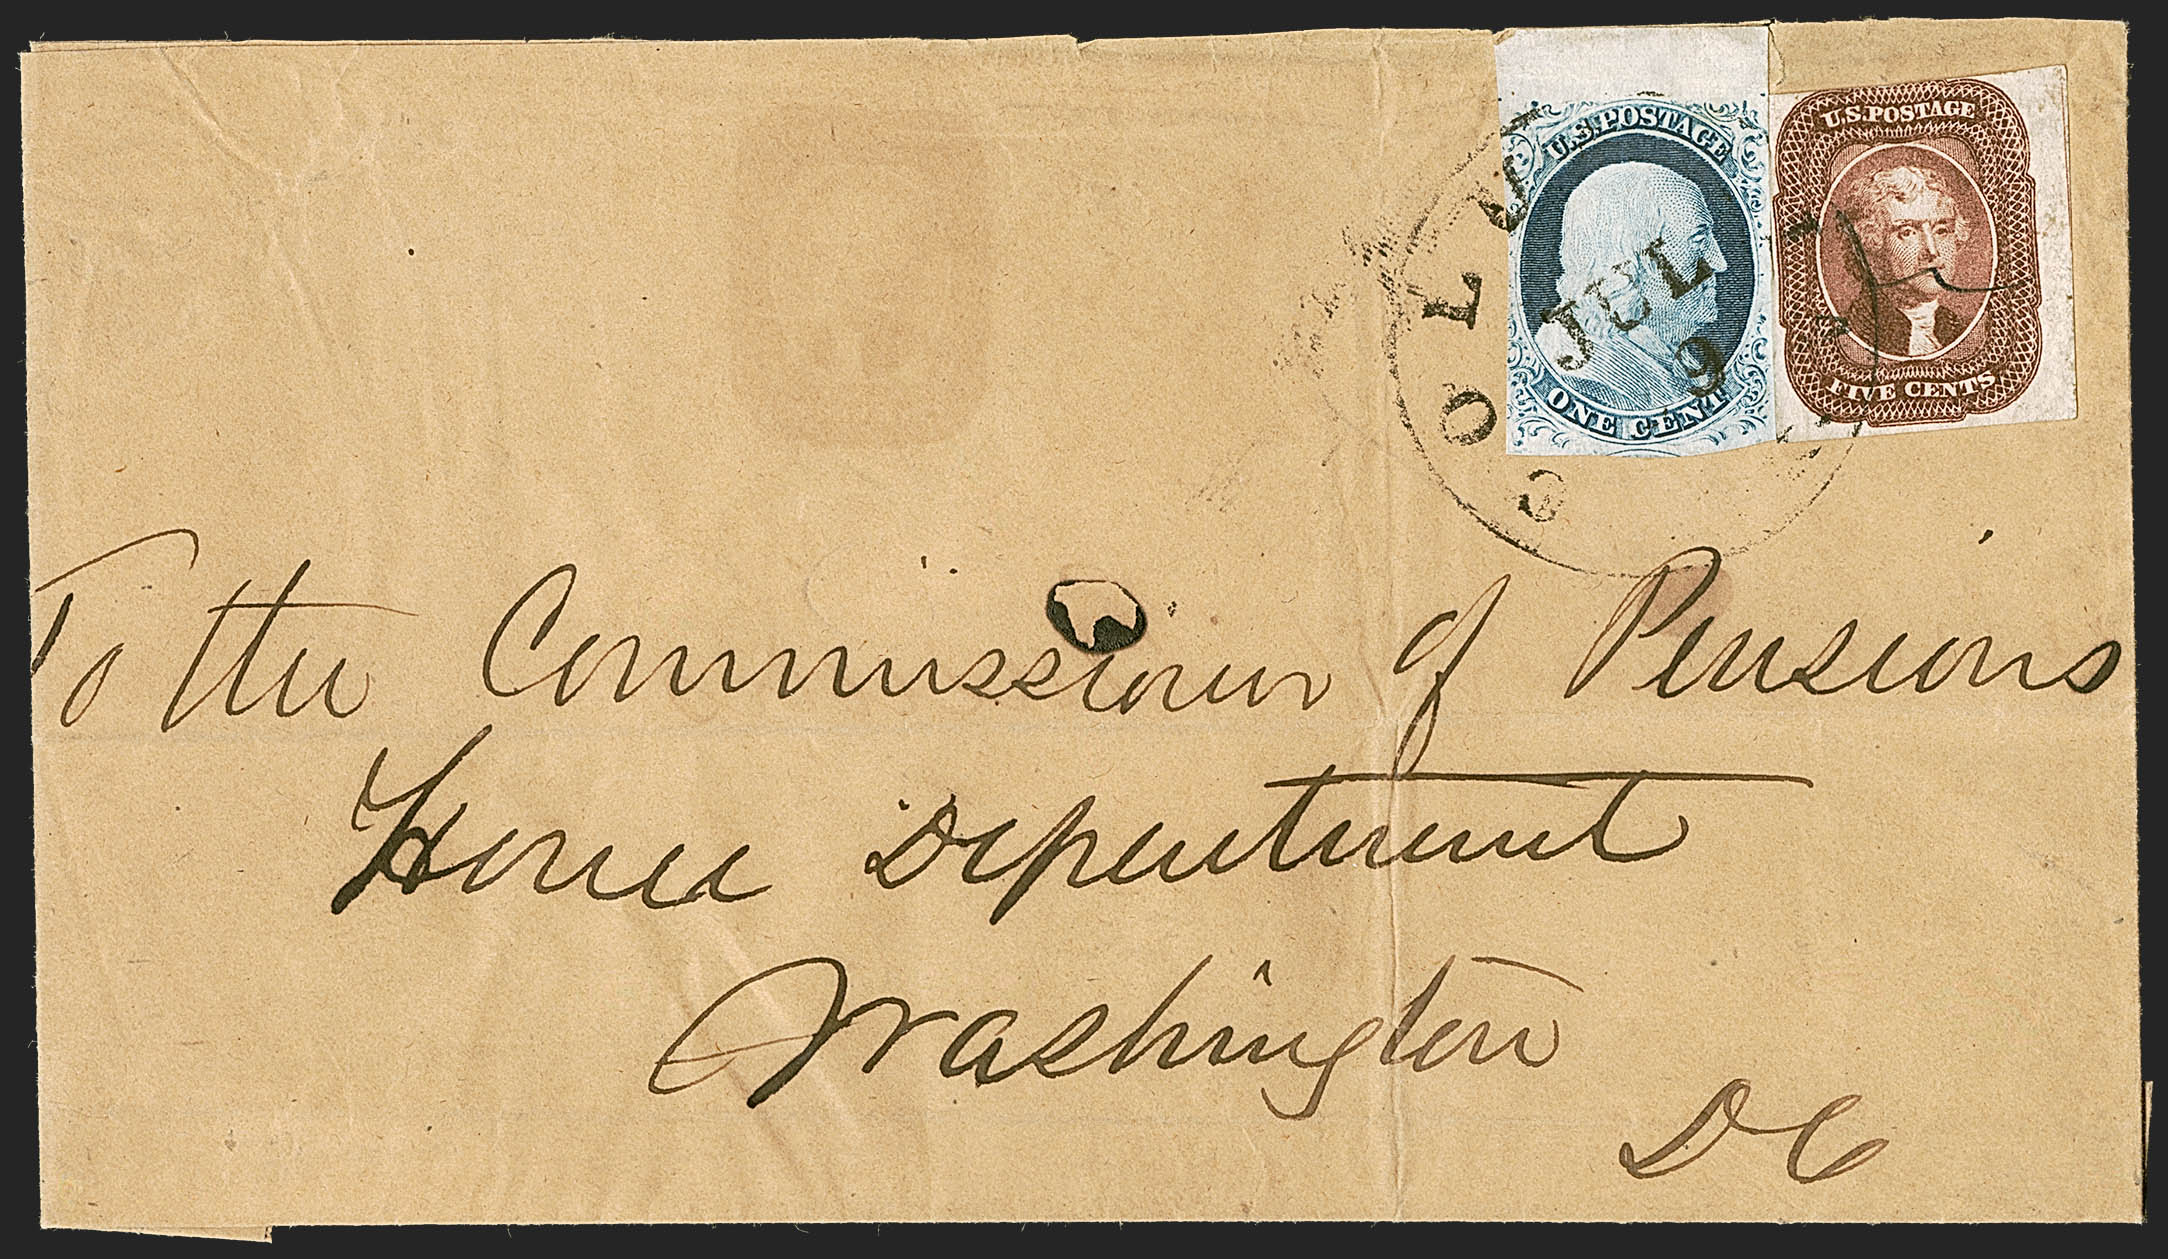 U.S. POSTAGE
ONE CENT
U.S. POSTAGE
FIVE CENTS
COLUM
JUL
9
To the Commissioner of Pensions
Home Department
Washington
DC